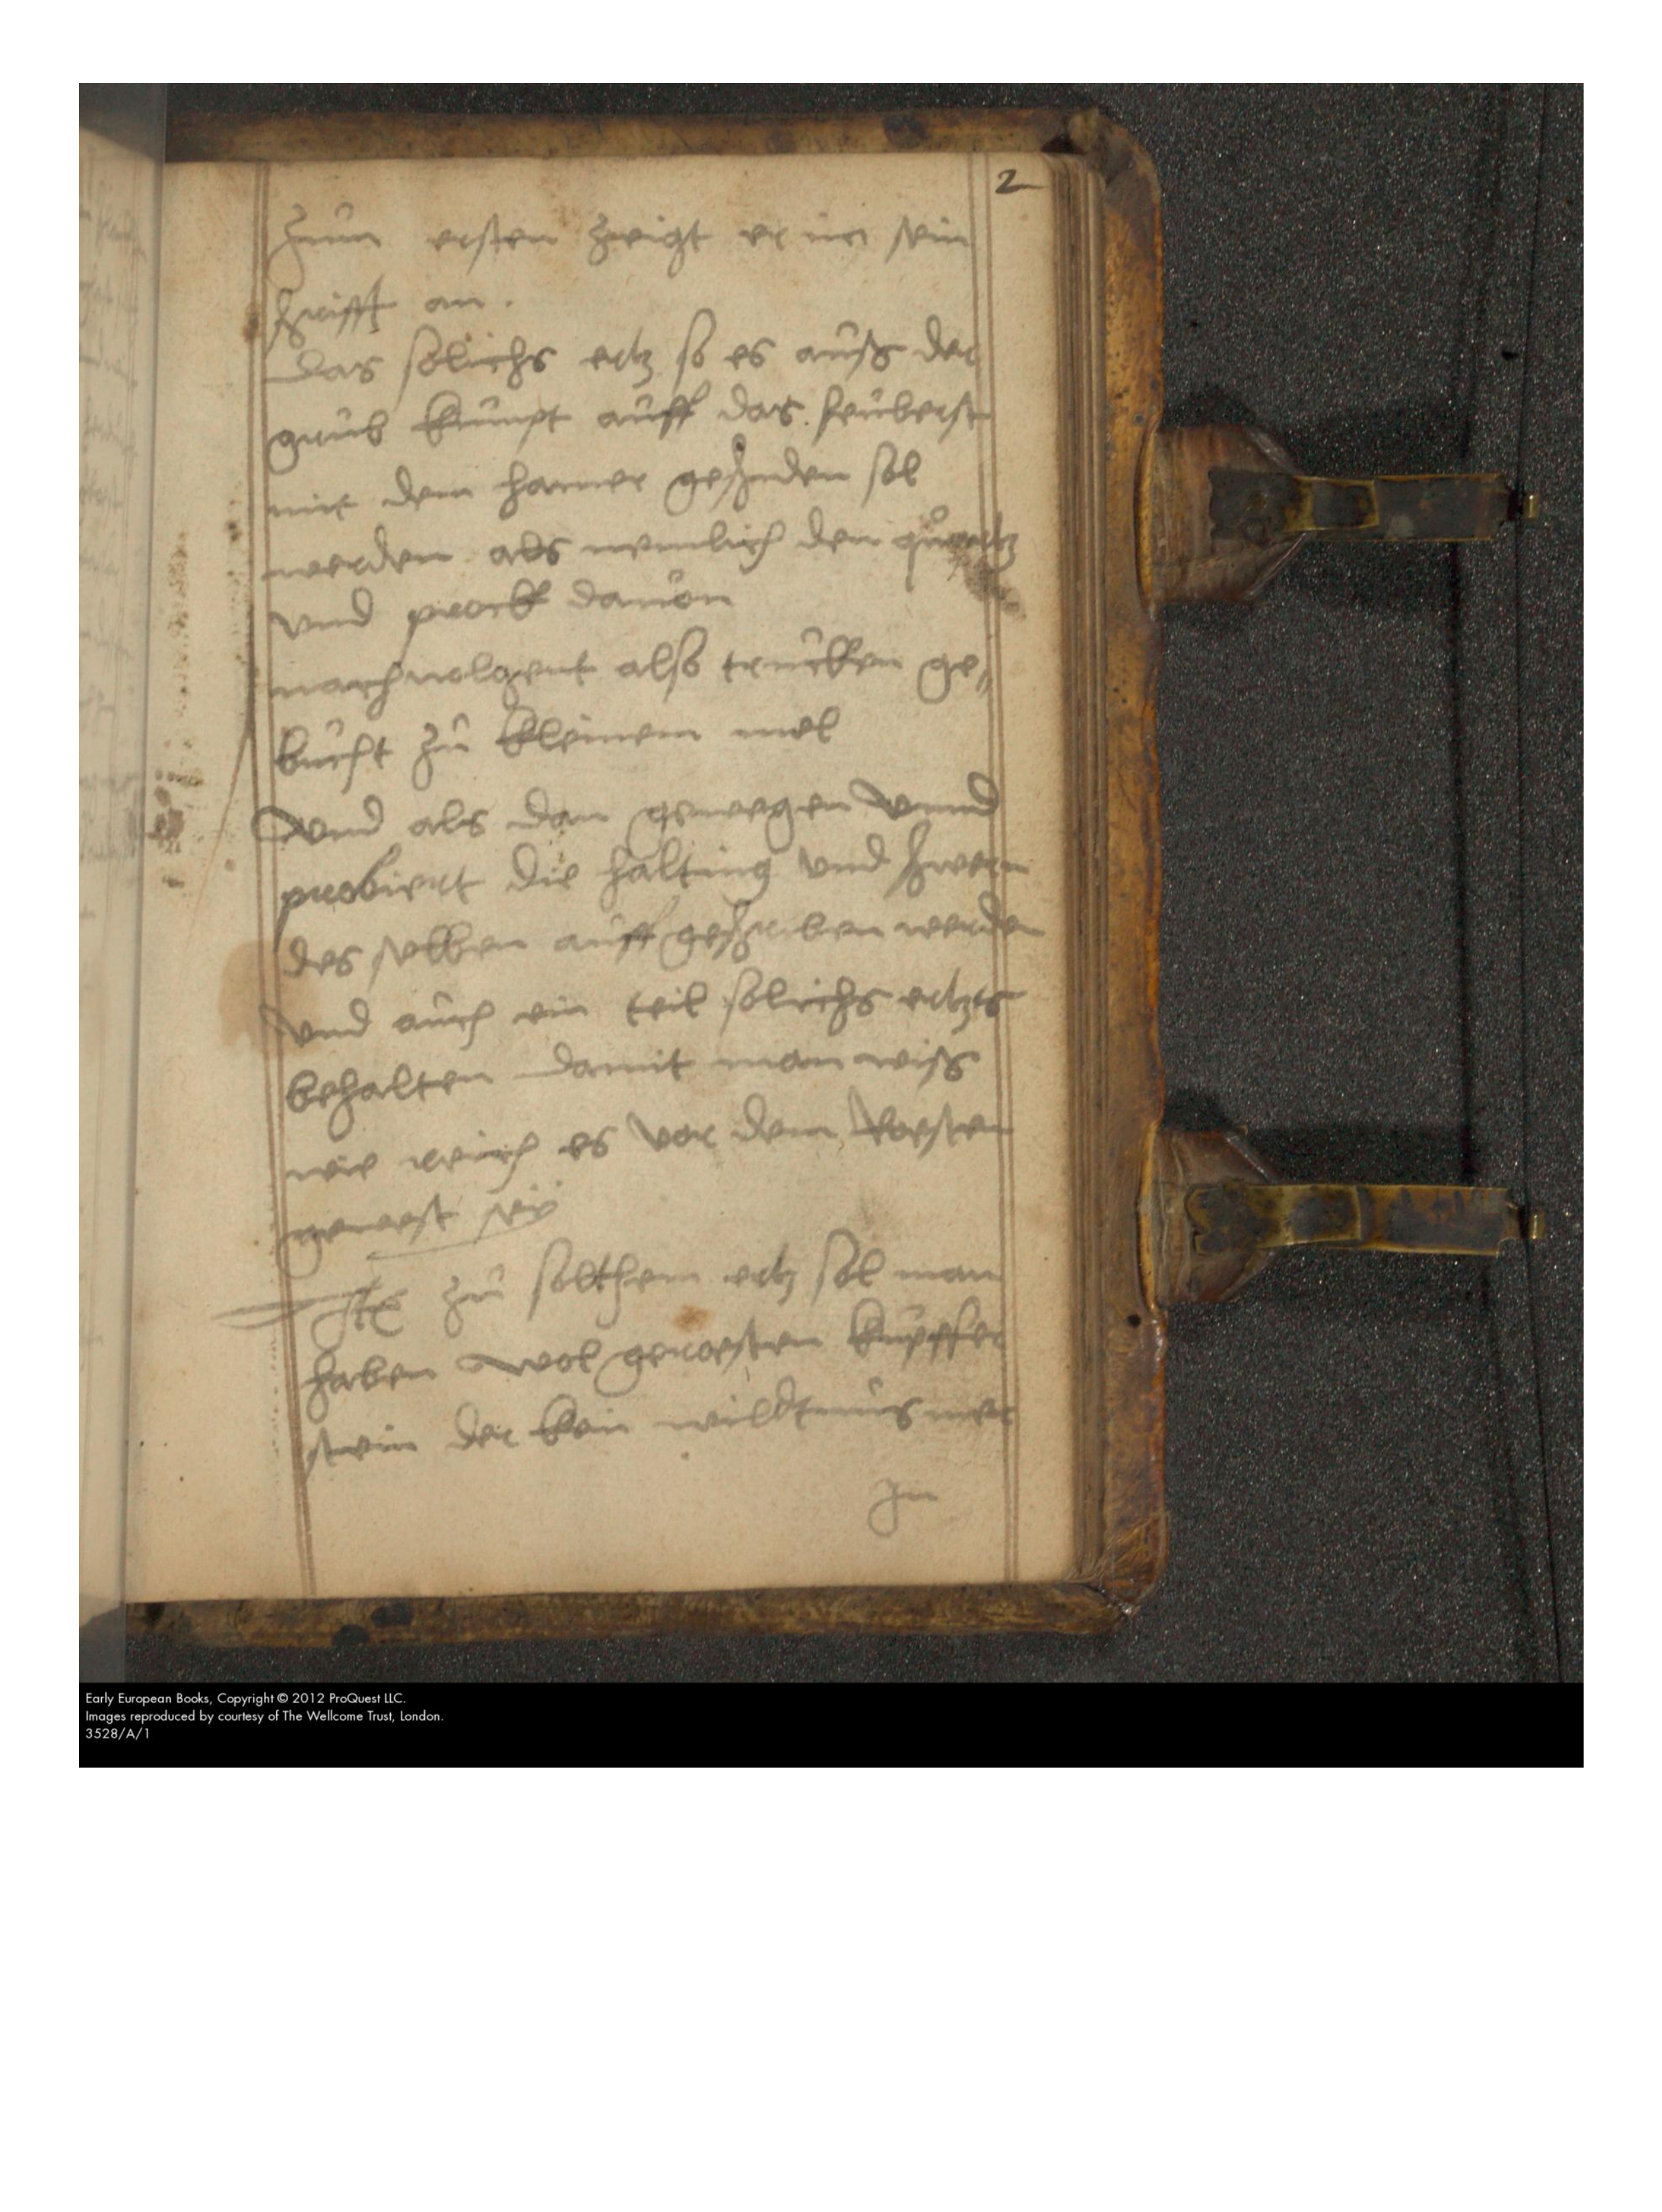 2
Zum ersten zeigt er in sein
schrifft an.
Das solichs ertz so es auß der
grub kumpt auff das seuberst
mit dem hamer geschiden sol
werden als nemlich den quartz
vnd prock dauon
nachuolgent also trucken ge„
bucht zu kleinem mel
Vnd als dan gewegen vnnd
probiert die halting vnd schwern
des selben auff geschriben werden
Vnd auch ein teil solichs ertzts
behalten damit man wiss
wie reich es vor dem Roesten
gewest sey
Ite zu solchem ertz sol man
haben wol geroesten kupffer
stein der kein wildtnus mer
In
Early European Books, Copyright © 2012 ProQuest LLC.
Images reproduced by courtesy of The Wellcome Trust, London.
3528/A/1